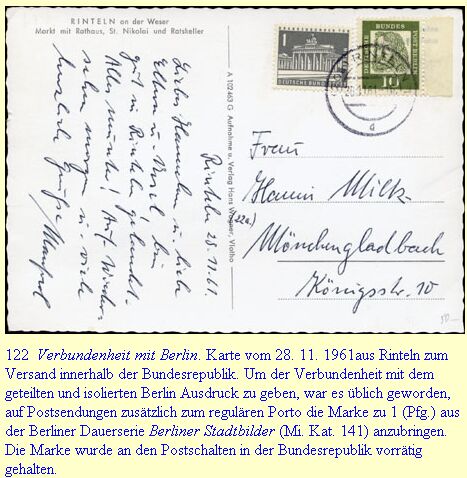 RINTELN an der Weser
Markt mit Rathaus, St. Nikolai und Ratskeller
A 102463 G Aufnahme u. Verlag Hans Wagner, Vlotho
Rinteln 28.11.61.
Liebes Hannchen u. liebe
Eltern u.
gut in Rinteln gelandet.
Alles munter! Auf Wieder-
sehen morgen u. viele
herzliche Grüße Manfred
1
DEUTSCHE BUNDESPOST
BUNDES
POST
10
RINTELN
a
Frau
Hanni Milk
(22a)
Mönchengladbach
Königsstr. 10
122 Verbundenheit mit Berlin. Karte vom 28. 11. 1961aus Rinteln zum
Versand innerhalb der Bundesrepublik. Um der Verbundenheit mit dem
geteilten und isolierten Berlin Ausdruck zu geben, war es üblich geworden,
auf Postsendungen zusätzlich zum regulären Porto die Marke zu 1 (Pfg.) aus
der Berliner Dauerserie Berliner Stadtbilder (Mi. Kat. 141) anzubringen.
Die Marke wurde an den Postschalten in der Bundesrepublik vorrätig
gehalten.